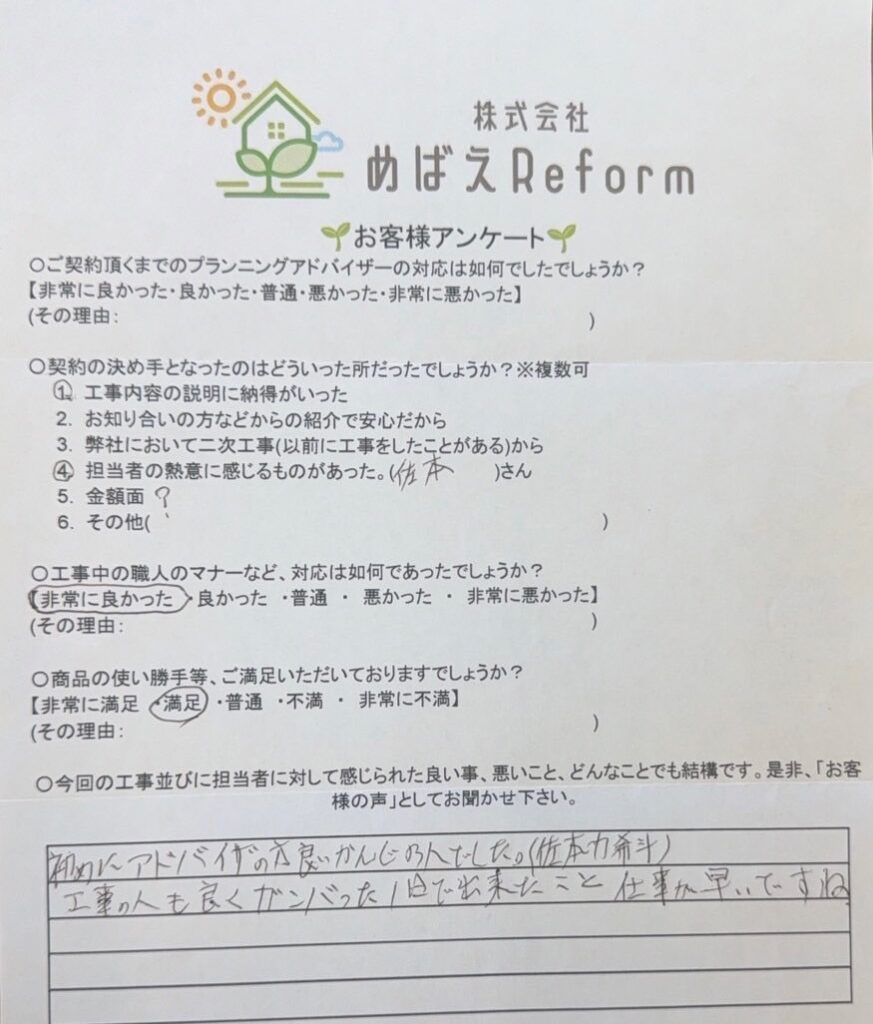 株式会社
めばえReform
お客様アンケート
○ご契約頂くまでのプランニングアドバイザーの対応は如何でしたでしょうか？
【非常に良かった・良かった・普通・悪かった・非常に悪かった】
(その理由: )
○契約の決め手となったのはどういった所だったでしょうか？※複数可
1. 工事内容の説明に納得がいった
2. お知り合いの方などからの紹介で安心だから
3. 弊社において二次工事(以前に工事をしたことがある)から
4. 担当者の熱意に感じるものがあった。(佐本 )さん
5. 金額面 ?
6. その他( )
○工事中の職人のマナーなど、対応は如何であったでしょうか？
【非常に良かった・良かった ・普通 ・ 悪かった ・ 非常に悪かった】
(その理由: )
○商品の使い勝手等、ご満足いただいておりますでしょうか？
【非常に満足 ・満足 ・普通 ・不満 ・ 非常に不満】
(その理由: )
○今回の工事並びに担当者に対して感じられた良い事、悪いこと、どんなことでも結構です。是非、「お客
様の声」としてお聞かせ下さい。
初めにアドバイザの方良いかんじの人でした。(佐本力希斗)
工事の人も良くガンバった1日で出来たこと 仕事が早いですね